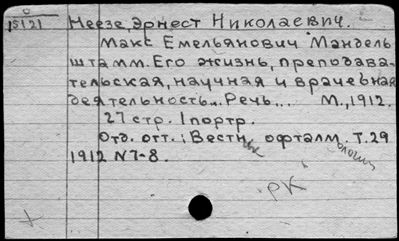 15121 Неезе, Эрнест Николаевич.
Макс Емельянович Мандель
штамм. Его жизнь, преподава-
тельская, научная и врачебная
деятельность... Речь... М., 1912.
27 стр. 1 портр.
Отд. отт.: Вестник офталмологии Т. 29
1912 N7-8.
РК